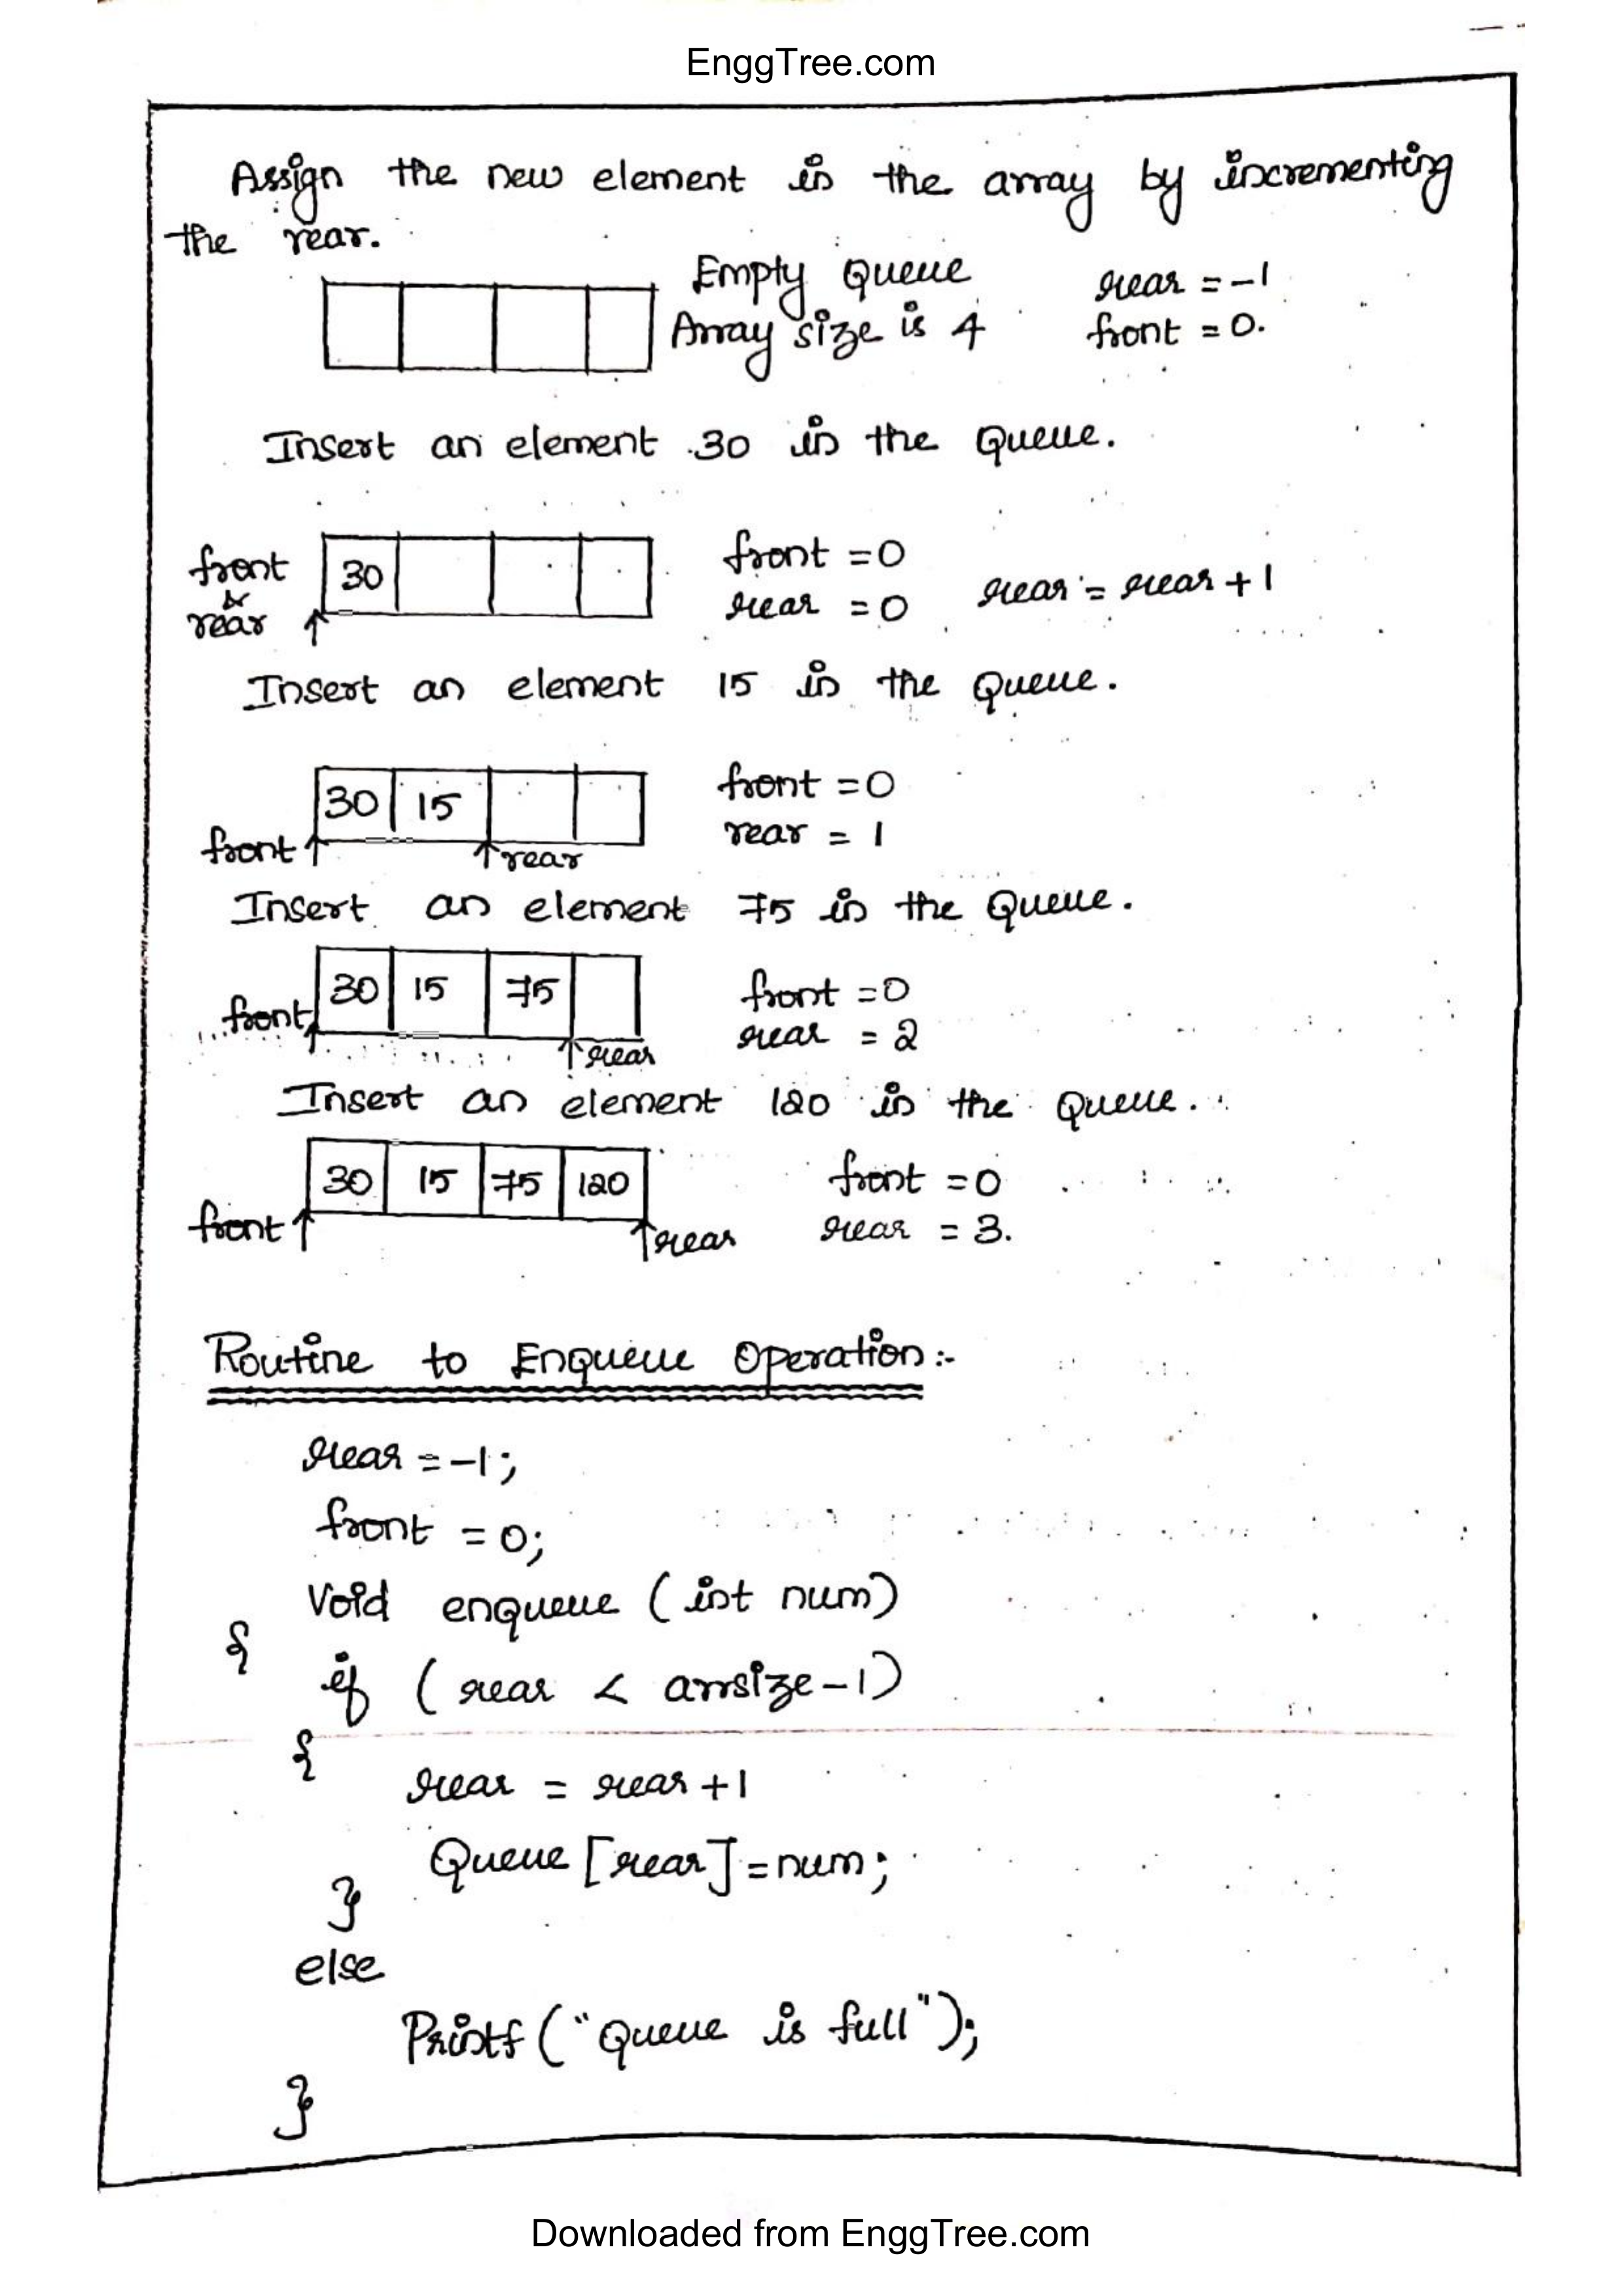 EnggTree.com
Assign the new element in the array by incrementing
the rear.
Empty Queue rear = -1
Array size is 4 front = 0.
Insert an element 30 in the Queue.
front 30 front = 0
& rear = rear + 1
rear rear = 0
Insert an element 15 in the Queue.
30 15 front = 0
rear = 1
front rear
Insert an element 75 in the Queue.
30 15 75 front = 0
front rear = 2
rear
Insert an element 120 in the Queue.
30 15 75 120 front = 0
front rear rear = 3.
Routine to Enqueue Operation :-
rear = -1 ;
front = 0;
Void enqueue ( int num)
{
if ( rear < arrsize - 1)
{
rear = rear + 1
Queue [rear] = num ;
}
else
Printf ( "Queue is full");
}
Downloaded from EnggTree.com